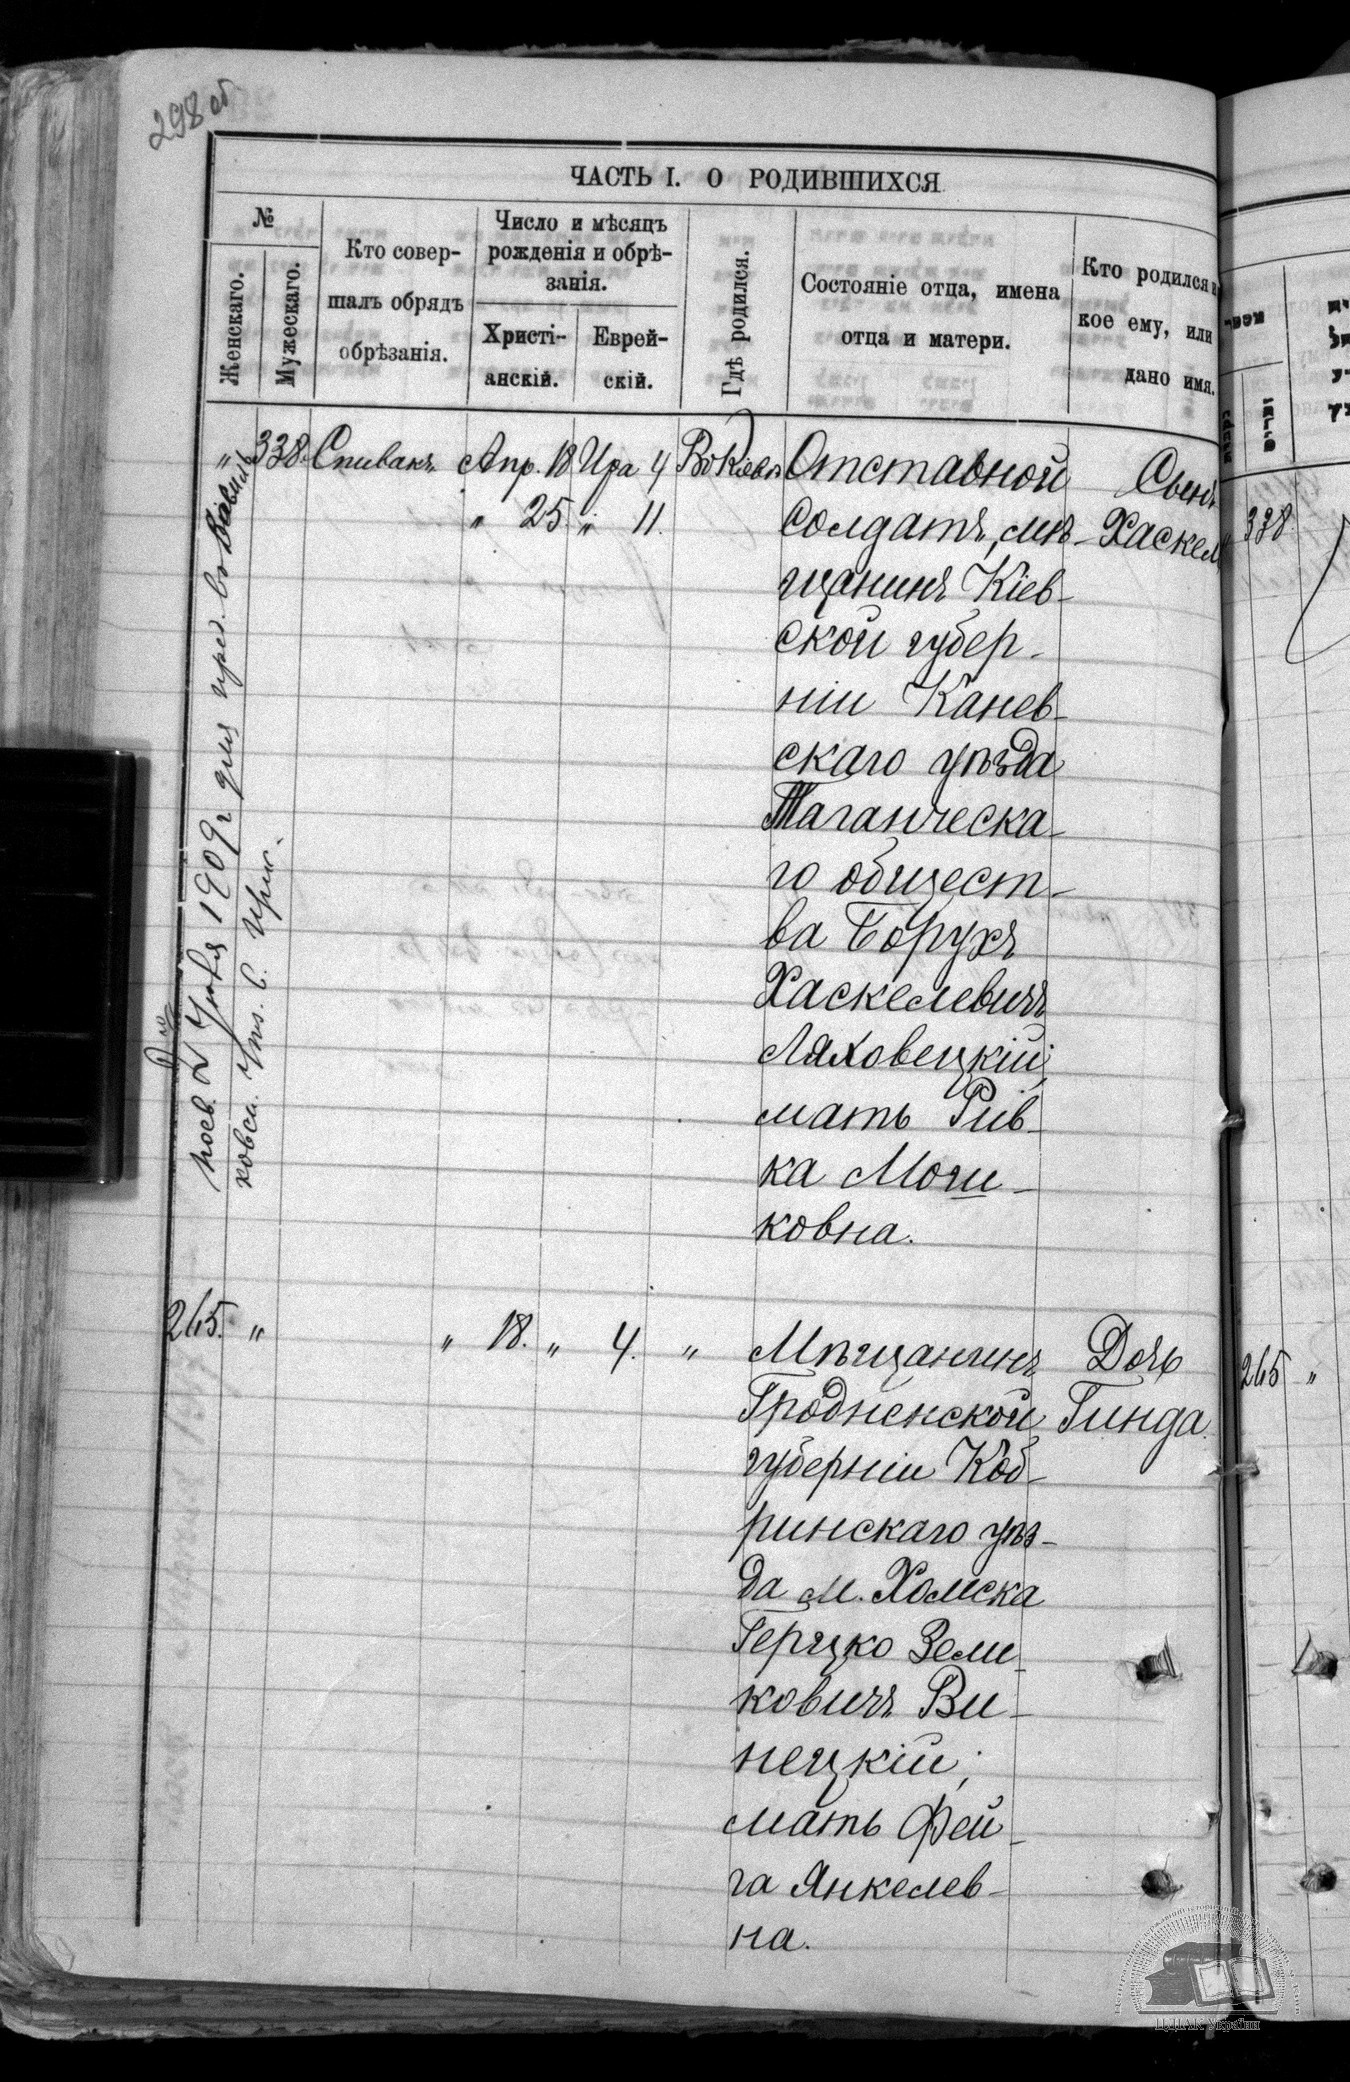 298 об
ЧАСТЬ I. О РОДИВШИХСЯ
№
Женскаго.
Мужескаго.
Кто совер-
шалъ обрядъ
обрѣзанія.
Число и мѣсяцъ
рожденія и обрѣ-
занія.
Христі-
анскій.
Еврей-
скій.
Гдѣ родился.
Состояніе отца, имена
отца и матери.
Кто родился и
кое ему, или
дано имя.
„ 338. Спивакъ Апр. 18 Ира 4 Въ Кіевѣ
„ 25 „ 11.
Отставной
солдатъ, мѣ-
щанинъ Кіев-
ской губер-
ніи Канев-
скаго уѣзда
Таганческа-
го общест-
ва Борухъ
Хаскелевичъ
Ляховецкій;
мать Рив-
ка Мош-
ковна.
Сынъ
Хаскель
338.
1909 г для
265. „ „ 18. „ 4. „
Мѣщанинъ
Гродненской
губерніи Коб-
ринскаго уѣз-
да м. Хомска
Герцко Зели-
ковичъ Ви-
нецкій;
мать Фей-
га Янкелев-
на.
Дочь
Гинда.
265 „
ЦДІАК України